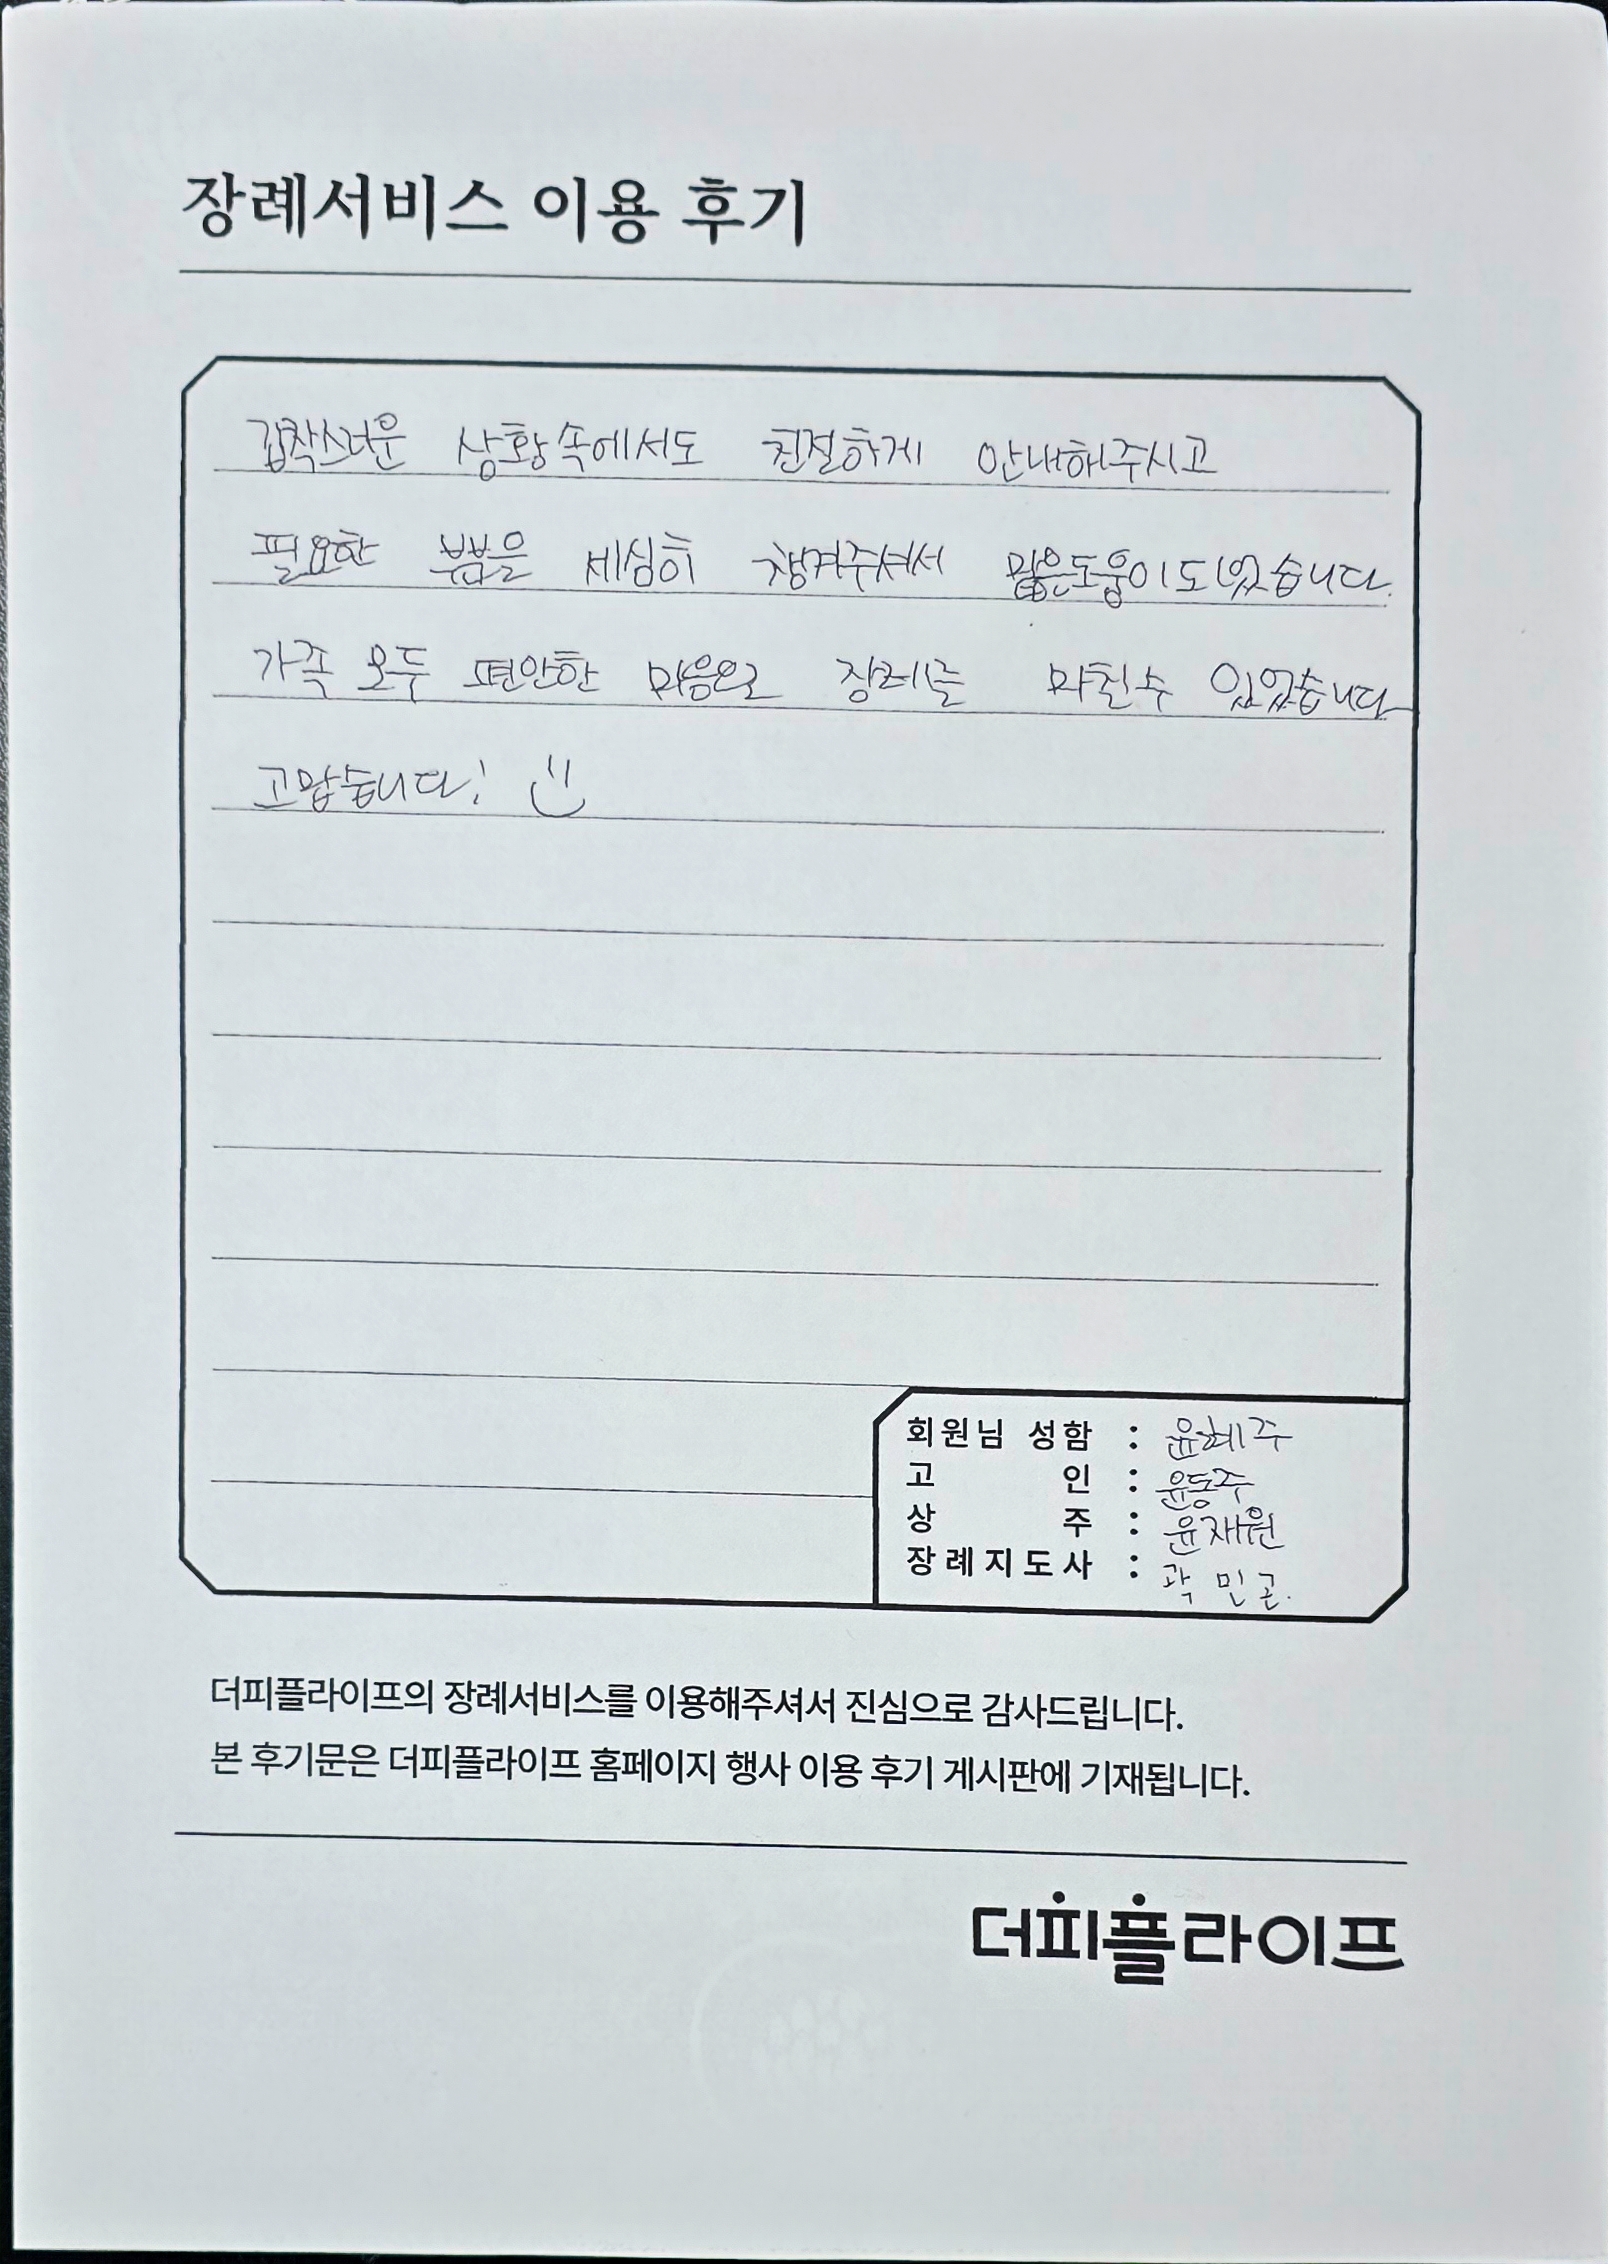 장례서비스 이용 후기
갑작스러운 상황속에서도 친절하게 안내해주시고
필요한 부분을 세심히 챙겨주셔서 많은도움이되었습니다.
가족 모두 편안한 마음으로 장례를 마칠수 있었습니다
고맙습니다!
회원님 성함 : 윤혜주
고 인 : 윤동주
상 주 : 윤재원
장례지도사 : 곽민곤.
더피플라이프의 장례서비스를 이용해주셔서 진심으로 감사드립니다.
본 후기문은 더피플라이프 홈페이지 행사 이용 후기 게시판에 기재됩니다.
더피플라이프